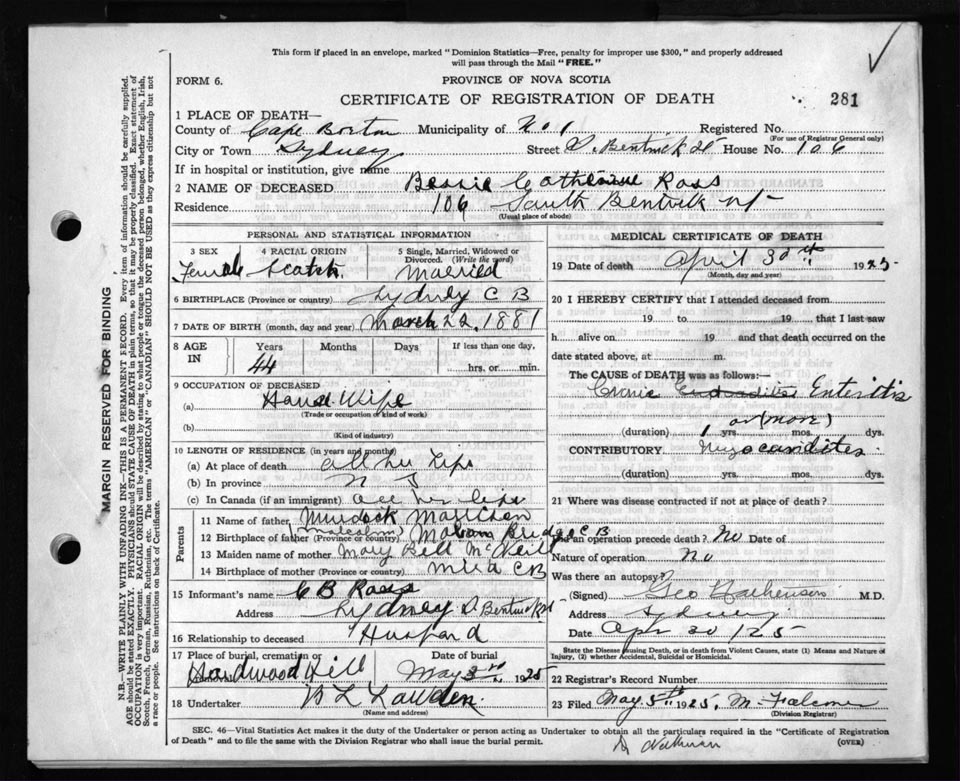 This form if placed in an envelope, marked "Dominion Statistics—Free, penalty for improper use $300," and properly addressed
will pass through the Mail "FREE."
FORM 6.
PROVINCE OF NOVA SCOTIA
CERTIFICATE OF REGISTRATION OF DEATH
281
1 PLACE OF DEATH—
County of Cape Breton Municipality of No 1 Registered No.
(For use of Registrar General only)
City or Town Sydney Street S. Bentinck St House No. 106
If in hospital or institution, give name
2 NAME OF DECEASED Bessie Catherine Ross
Residence 106 South Bentick St
(Usual place of abode)
PERSONAL AND STATISTICAL INFORMATION
3 SEX 4 RACIAL ORIGIN 5 Single, Married, Widowed or
Divorced. (Write the word)
Female Scotch Married
6 BIRTHPLACE (Province or country) Sydney C B
7 DATE OF BIRTH (month, day and year) March 22, 1881
8 AGE IN Years Months Days If less than one day,
44 hrs. or min.
9 OCCUPATION OF DECEASED
(a) House Wife
(Trade or occupation or kind of work)
(b)
(Kind of industry)
10 LENGTH OF RESIDENCE (in years and months)
(a) At place of death all her life
(b) In province N S
(c) In Canada (if an immigrant) all her life
Parents
11 Name of father Murdock
(Malcolm)
12 Birthplace of father (Province or country) Bridge C B
13 Maiden name of mother Mary Bell McNeil
14 Birthplace of mother (Province or country) Mira C B
15 Informant's name C B Ross
Address Sydney S Bentinck St
16 Relationship to deceased Husband
17 Place of burial, cremation or Date of burial
Hardwood Hill May 3rd 1925
18 Undertaker B L
(Name and address)
MEDICAL CERTIFICATE OF DEATH
19 Date of death April 30th 1925
(Month, day and year)
20 I HEREBY CERTIFY that I attended deceased from
19 to 19 that I last saw
h alive on 19 and that death occurred on the
date stated above, at m.
The CAUSE of DEATH was as follows:—
Enteritis
or (more)
(duration) 1 yrs. mos. dys.
CONTRIBUTORY
(duration) yrs. mos. dys.
21 Where was disease contracted if not at place of death?
an operation precede death? No Date of
Nature of operation no
Was there an autopsy?
(Signed) Geo M.D.
Address Sydney
Date Apr 30/25
State the Disease Causing Death, or in death from Violent Causes, state (1) Means and Nature of
Injury, (2) whether Accidental, Suicidal or Homicidal.
22 Registrar's Record Number
23 Filed May 5th 1925, M.
(Division Registrar)
SEC. 46—Vital Statistics Act makes it the duty of the Undertaker or person acting as Undertaker to obtain all the particulars required in the "Certificate of Registration
of Death" and to file the same with the Division Registrar who shall issue the burial permit.
(OVER)
MARGIN RESERVED FOR BINDING
N.B.—WRITE PLAINLY WITH UNFADING INK—THIS IS A PERMANENT RECORD. Every item of information should be carefully supplied.
AGE should be stated EXACTLY. PHYSICIANS should STATE CAUSE OF DEATH in plain terms, so that it may be properly classified. Exact statement of
OCCUPATION is very important. RACIAL ORIGIN will be described by stating to what people or tongue the deceased person belonged, whether English, Irish,
Scotch, French, German, Russian, Ruthenian, etc. The terms "AMERICAN" or "CANADIAN" SHOULD NOT BE USED as they express citizenship but not
a race or people. See instructions on back of Certificate.